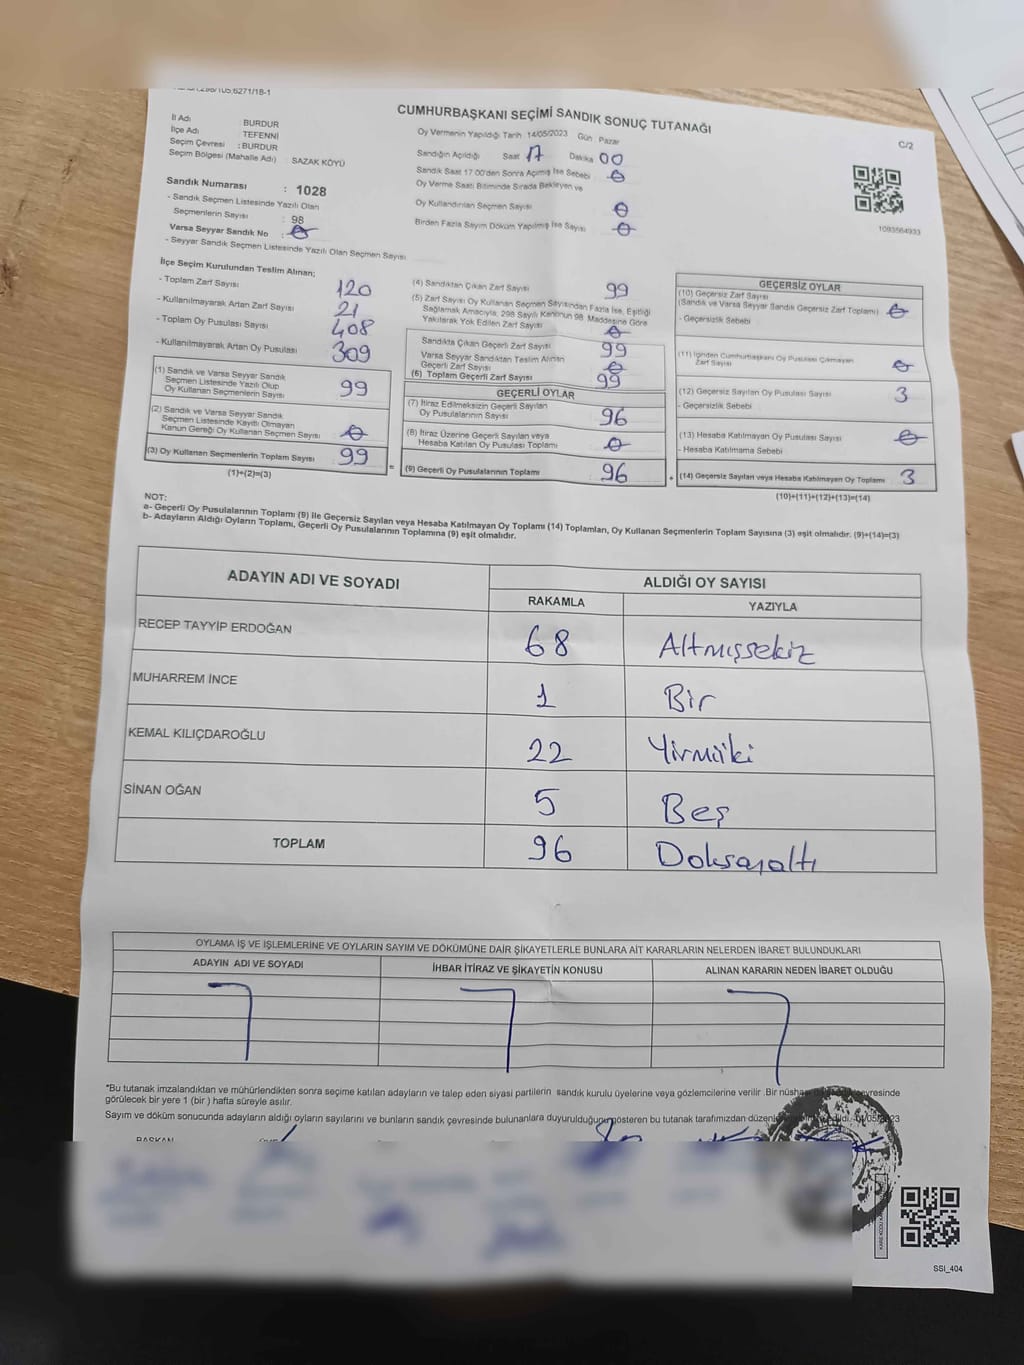 CUMHURBAŞKANI SEÇİMİ SANDIK SONUÇ TUTANAĞI
C/2
İl Adı BURDUR
İlçe Adı TEFENNİ
Seçim Çevresi : BURDUR
Seçim Bölgesi (Mahalle Adı) : SAZAK KÖYÜ
Sandık Numarası : 1028
- Sandık Seçmen Listesinde Yazılı Olan
Seçmenlerin Sayısı : 98
Varsa Seyyar Sandık No : 0
- Seyyar Sandık Seçmen Listesinde Yazılı Olan Seçmen Sayısı
Oy Vermenin Yapıldığı Tarih 14/05/2023 Gün Pazar
Sandığın Açıldığı Saat 17 Dakika 00
Sandık Saat 17 00'den Sonra Açılmış İse Sebebi 0
Oy Verme Saati Bitiminde Sırada Bekleyen ve
Oy Kullandırılan Seçmen Sayısı 0
Birden Fazla Sayım Döküm Yapılmış İse Sayısı 0
1093564933
İlçe Seçim Kurulundan Teslim Alınan;
- Toplam Zarf Sayısı 120
- Kullanılmayarak Artan Zarf Sayısı 21
- Toplam Oy Pusulası Sayısı 408
- Kullanılmayarak Artan Oy Pusulası 309
(1) Sandık ve Varsa Seyyar Sandık
Seçmen Listesinde Yazılı Olup
Oy Kullanan Seçmenlerin Sayısı 99
(2) Sandık ve Varsa Seyyar Sandık
Seçmen Listesinde Kayıtlı Olmayan
Kanun Gereği Oy Kullanan Seçmen Sayısı 0
(3) Oy Kullanan Seçmenlerin Toplam Sayısı 99
(1)+(2)=(3)
(4) Sandıktan Çıkan Zarf Sayısı 99
(5) Zarf Sayısı Oy Kullanan Seçmen Sayısından Fazla İse, Eşitliği
Sağlamak Amacıyla, 298 Sayılı Kanunun 98. Maddesine Göre
Yakılarak Yok Edilen Zarf Sayısı 0
Sandıkta Çıkan Geçerli Zarf Sayısı 99
Varsa Seyyar Sandıktan Teslim Alınan
Geçerli Zarf Sayısı 0
(6) Toplam Geçerli Zarf Sayısı 99
GEÇERLİ OYLAR
(7) İtiraz Edilmeksizin Geçerli Sayılan
Oy Pusulalarının Sayısı 96
(8) İtiraz Üzerine Geçerli Sayılan veya
Hesaba Katılan Oy Pusulası Toplamı 0
=
(9) Geçerli Oy Pusulalarının Toplamı 96
+
GEÇERSİZ OYLAR
(10) Geçersiz Zarf Sayısı
(Sandık ve Varsa Seyyar Sandık Geçersiz Zarf Toplamı) 0
- Geçersizlik Sebebi
(11) İçinden Cumhurbaşkanı Oy Pusulası Çıkmayan
Zarf Sayısı 0
(12) Geçersiz Sayılan Oy Pusulası Sayısı 3
- Geçersizlik Sebebi
(13) Hesaba Katılmayan Oy Pusulası Sayısı 0
- Hesaba Katılmama Sebebi
(14) Geçersiz Sayılan veya Hesaba Katılmayan Oy Toplamı 3
(10)+(11)+(12)+(13)=(14)
NOT:
a- Geçerli Oy Pusulalarının Toplamı (9) İle Geçersiz Sayılan veya Hesaba Katılmayan Oy Toplamı (14) Toplamları, Oy Kullanan Seçmenlerin Toplam Sayısına (3) eşit olmalıdır. (9)+(14)=(3)
b- Adayların Aldığı Oyların Toplamı, Geçerli Oy Pusulalarının Toplamına (9) eşit olmalıdır.
ADAYIN ADI VE SOYADI ALDIĞI OY SAYISI
RAKAMLA YAZIYLA
RECEP TAYYİP ERDOĞAN 68 Altmışsekiz
MUHARREM İNCE 1 Bir
KEMAL KILIÇDAROĞLU 22 Yirmiiki
SİNAN OĞAN 5 Beş
TOPLAM 96 Doksanaltı
OYLAMA İŞ VE İŞLEMLERİNE VE OYLARIN SAYIM VE DÖKÜMÜNE DAİR ŞİKAYETLERLE BUNLARA AİT KARARLARIN NELERDEN İBARET BULUNDUKLARI
ADAYIN ADI VE SOYADI İHBAR İTİRAZ VE ŞİKAYETİN KONUSU ALINAN KARARIN NEDEN İBARET OLDUĞU
*Bu tutanak imzalandıktan ve mühürlendikten sonra seçime katılan adayların ve talep eden siyasi partilerin sandık kurulu üyelerine veya gözlemcilerine verilir. Bir nüshası çevresinde
görülecek bir yere 1 (bir) hafta süreyle asılır.
Sayım ve döküm sonucunda adayların aldığı oyların sayılarını ve bunların sandık çevresinde bulunanlara duyurulduğunu gösteren bu tutanak tarafımızdan
BAŞKAN
SSI_404